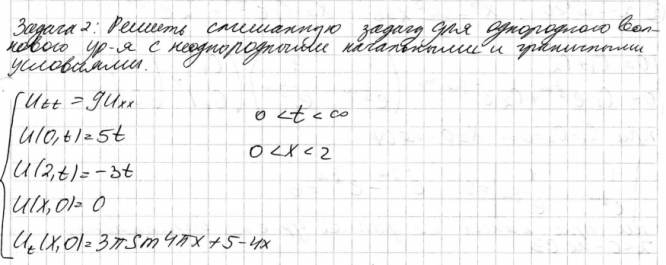 Задача 2: Решить смешанную задачу для однородного вол-
нового ур-я с неоднородными начальными и граничными
условиями.
U_tt = 9U_xx
0 < t < ∞
U(0,t) = 5t
0 < x < 2
U(2,t) = -3t
U(x,0) = 0
U_t(x,0) = 3π sin 4πx + 5 - 4x